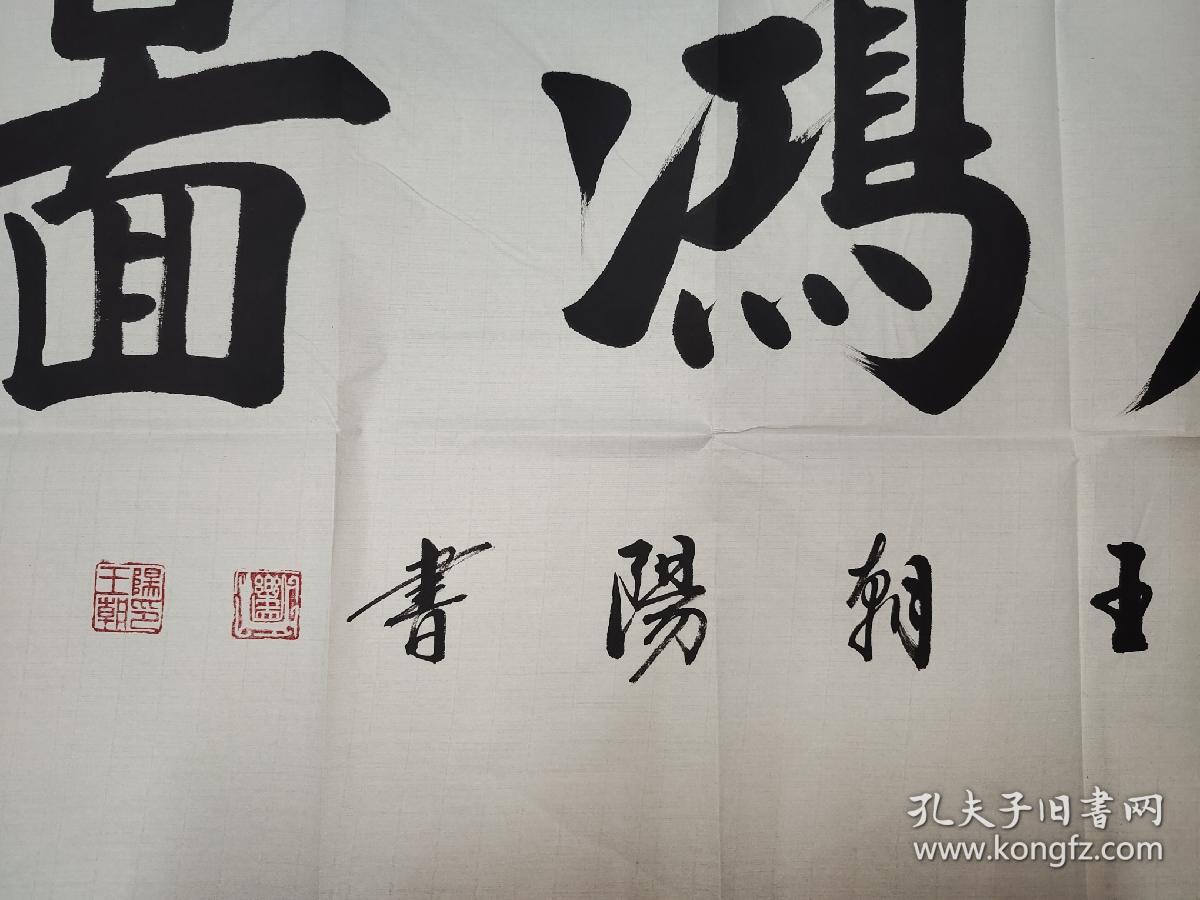 鴻啚
王朝陽書
王朝陽印
孔夫子旧书网
www.kongfz.com